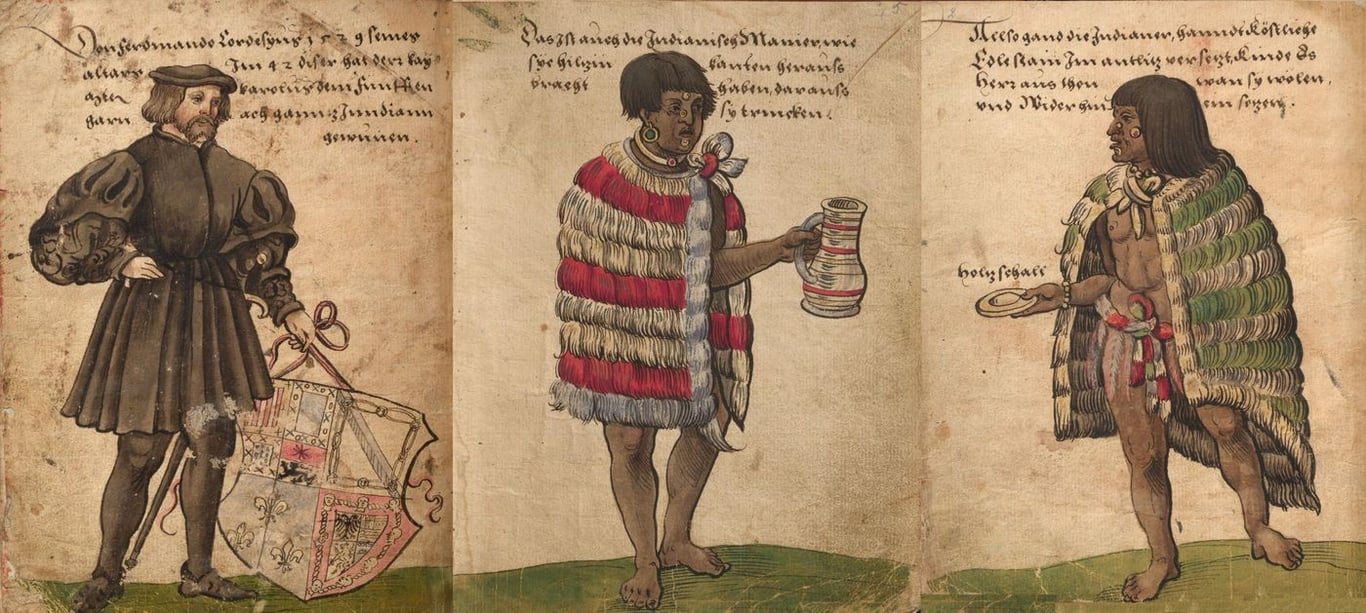 Don Ferdinando Cordesyus 1529 seines
altars Im 42 diser hat dem kay
karolus dem funfften
gewunen.
Das Ist auch die Indianisch Manier, wie
sye hilzin kanten heraus
bracht haben, daraus
sy trincken.
Allso gand die Indianer, hanndt kostliche
Edlestain Im antlitz versetzt, kinde Es
heraus thon wan sy wolen,
und wider hin ein setzen.
holtz schall